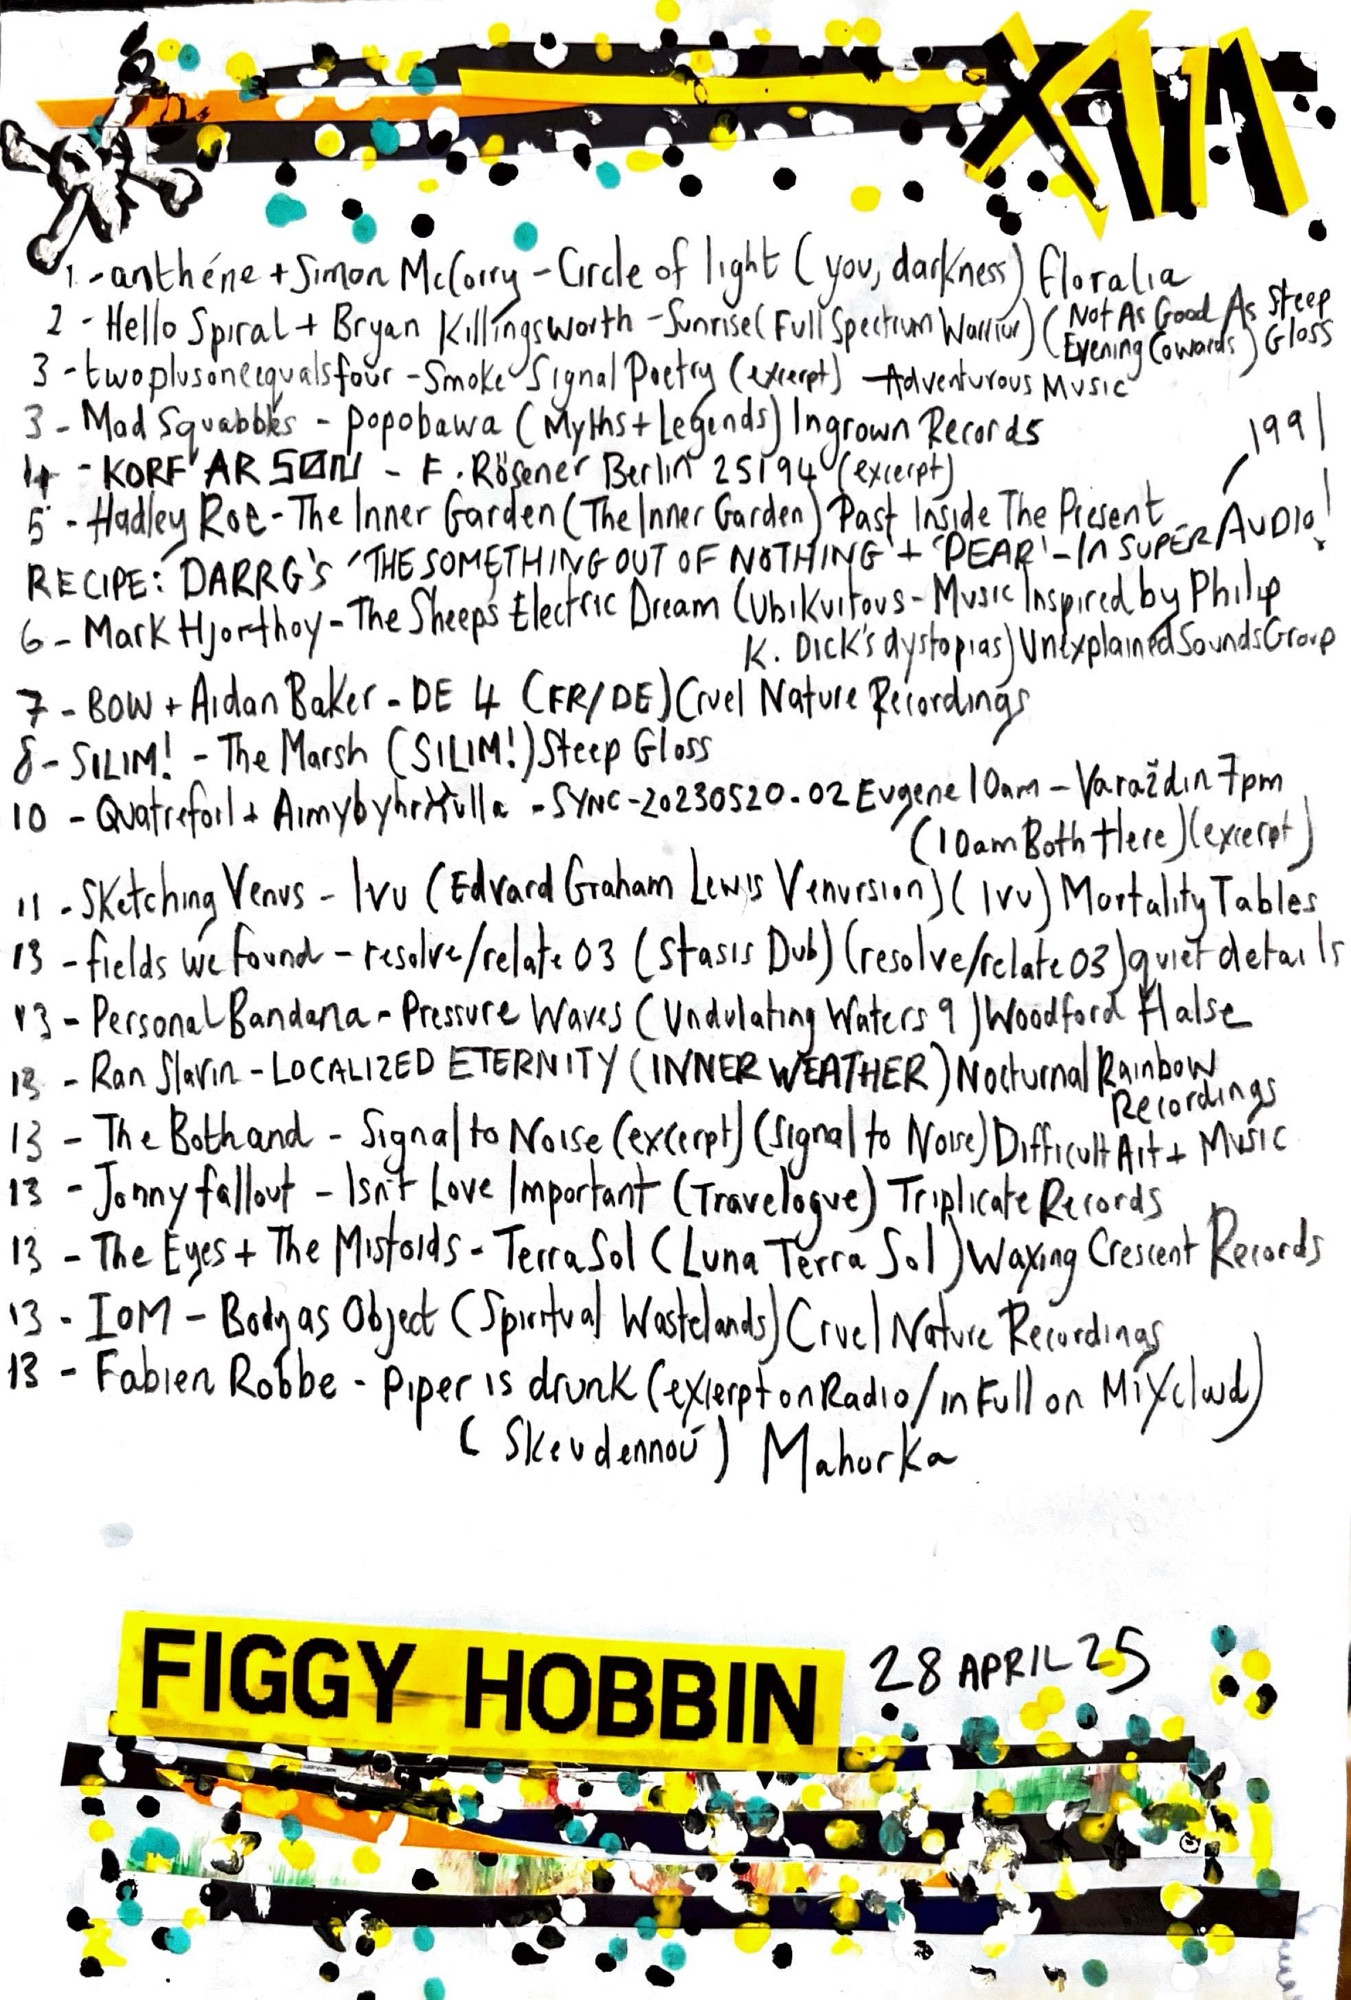 XIII
1 - anthéne + Simon McCorry - Circle of light (you, darkness) Floralia
2 - Hello Spiral + Bryan Killingsworth - Sunrise (Full Spectrum Warrior) (Not As Good As Steep
Evening Cowards) Gloss
3 - twoplusoneequalsfour - Smoke Signal Poetry (excerpt) Adventurous Music
3 - Mad Squabbles - Popobawa (Myths + Legends) Ingrown Records
1991
4 - KORF AR SON - F. Rösener Berlin 25194 (excerpt)
5 - Hadley Roe - The Inner Garden (The Inner Garden) Past Inside The Present
RECIPE: DARRG's 'THE SOMETHING OUT OF NOTHING' + 'PEAR' - In SUPER AUDIO!
6 - Mark Hjorthoy - The Sheep's Electric Dream (Ubikuitous - Music Inspired by Philip
K. Dick's dystopias) Unexplained Sounds Group
7 - BOW + Aidan Baker - DE 4 (FR/DE) Cruel Nature Recordings
8 - SILIM! - The Marsh (SILIM!) Steep Gloss
10 - Quatrefoil + - SYNC-20230520.02 Eugene 10am - Varaždin 7pm
(10am Both Here) (excerpt)
11 - Sketching Venus - Ivu (Edvard Graham Lewis Venursion) (Ivu) Mortality Tables
13 - fields we found - resolve/relate 03 (Stasis Dub) (resolve/relate 03) quiet details
13 - Personal Bandana - Pressure Waves (Undulating Waters 9) Woodford Halse
13 - Ran Slavin - LOCALIZED ETERNITY (INNER WEATHER) Nocturnal Rainbow
Recordings
13 - The Bothand - Signal to Noise (excerpt) (Signal to Noise) Difficult Art + Music
13 - Jonny fallout - Isn't Love Important (Travelogue) Triplicate Records
13 - The Eyes + The Mistoids - Terra Sol (Luna Terra Sol) Waxing Crescent Records
13 - IOM - Body as Object (Spiritual Wastelands) Cruel Nature Recordings
13 - Fabien Robbe - Piper is drunk (excerpt on Radio/in Full on Mixcloud)
(Skeudennoù) Mahorka
FIGGY HOBBIN 28 APRIL 25